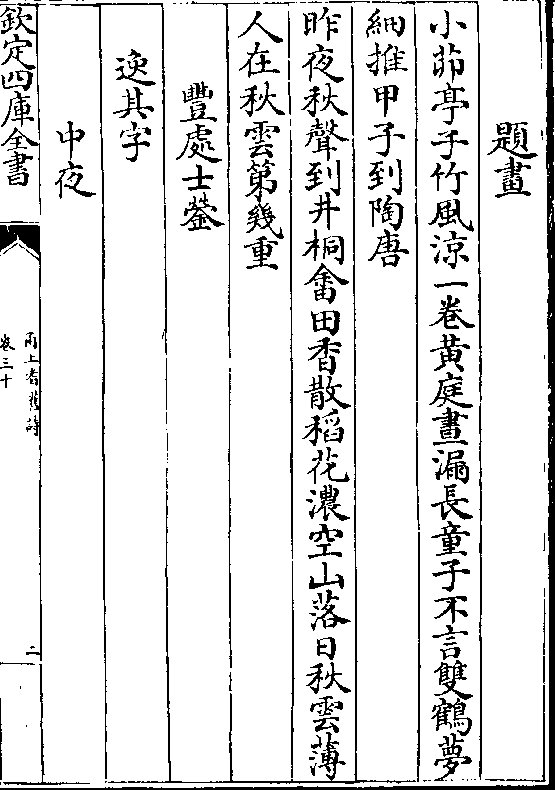 題畫
小茆亭子竹風涼一卷黃庭晝漏長童子不言雙鶴夢
細推甲子到陶唐
昨夜秋聲到井桐畬田香散稻花濃空山落日秋雲薄
人在秋雲第幾重
豐處士鎣
逸其字
中夜
欽定四庫全書
甬上耆舊詩
卷三十
二